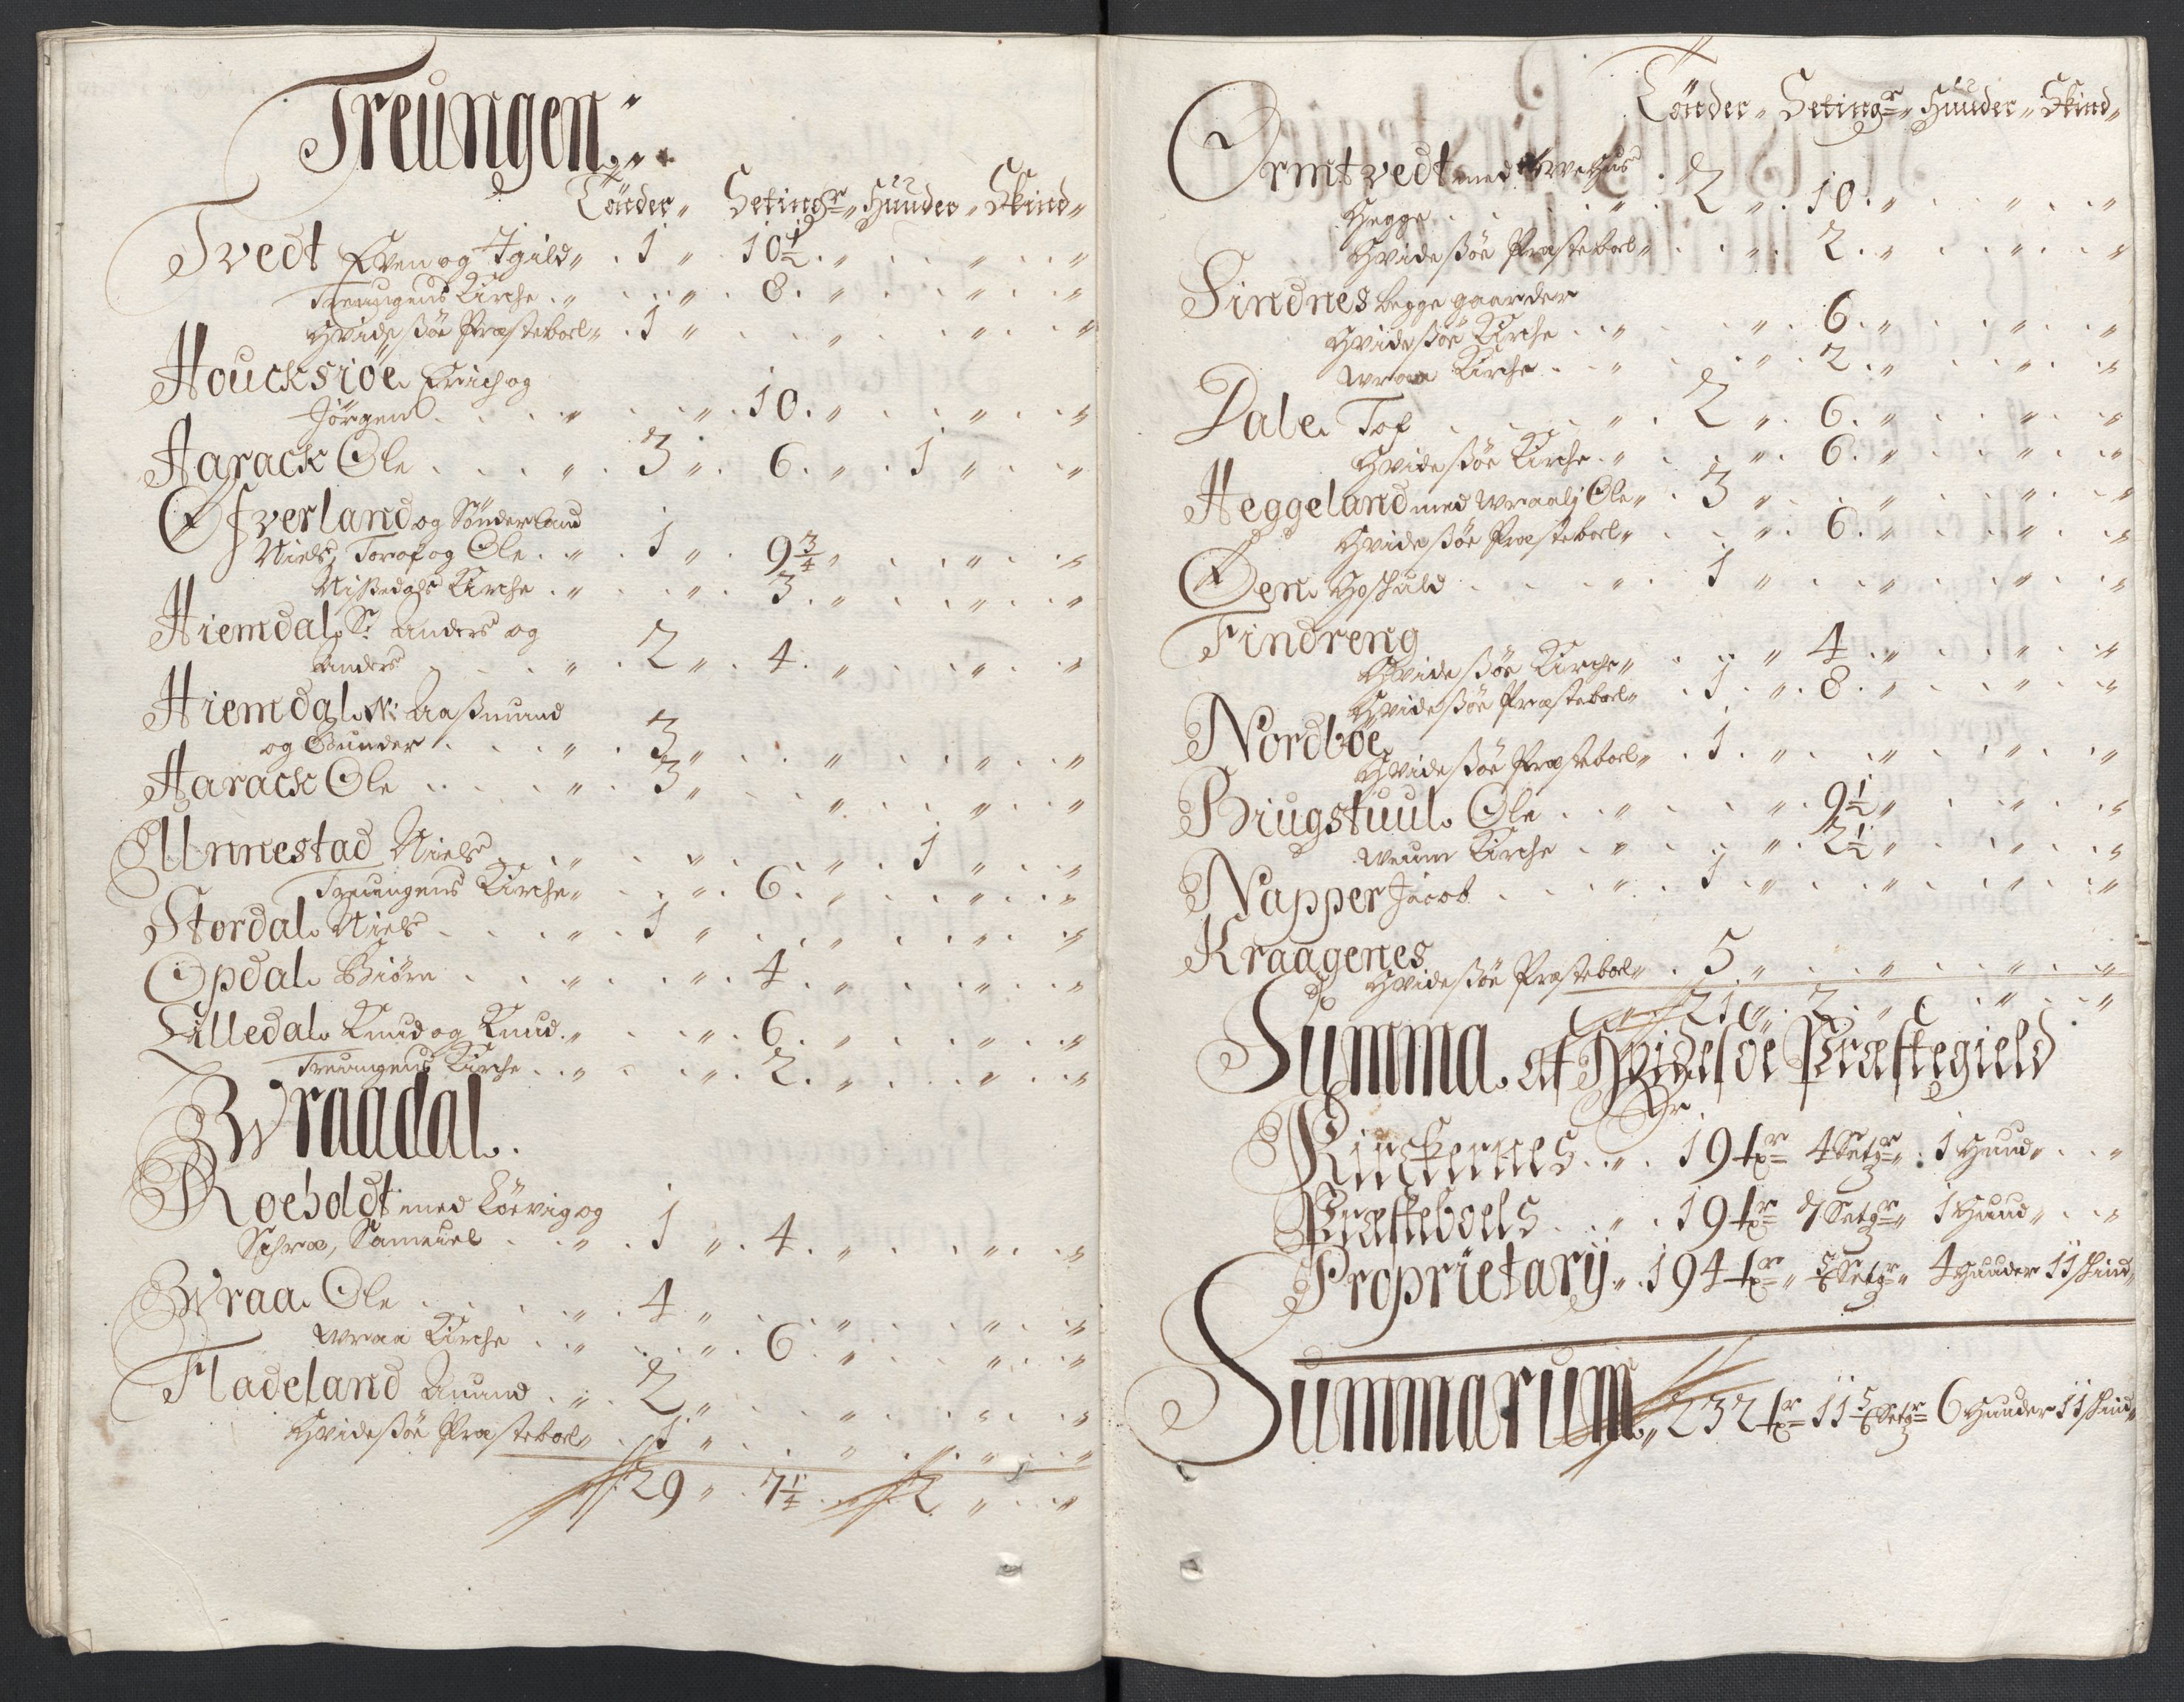 Treungen
Tönder Setingr Huuder Skind
Tvedt Even og Egild 1 10 1/2
Treungens Kirche 8
Hvideßöe Præsteboel 1
Houcksiöe Erich og
Jörgen 10
Aarack Ole 3 6 1
Öfverland og Sönderland
Niels, Torof og Ole 1 9 3/4
Nißedals Kirche 3
Hiemdal Sr Anders og
Anders 2 4
Hiemdal N: Aaßmund
og Gunder 3
Aarack Ole 3
Unnestad Niels 1
Treungens Kirche 6
Stordal Niels 1
Opdal Biörn 4
Lilledal Knud og Knud 6
Treungens Kirche 2
Wraadal
Roeholdt med Löevig og
Schræ, Samuel 1 4
Wraa Ole 4
Wraa Kirche 6
Fladeland Amund 2
Hvideßöe Præsteboel 1
29 7 1/4 2
Tönder Setingr Huuder Skind
Ormtvedt med
Hegge 2 10
Hvideßöe Præsteboel 2
Sindnes begge gaarder
Hvideßöe Kirche 6
Wraa Kirche 2
Dale Tof 2 6
Hvideßöe Kirche 6
Heggeland med Wraalj Ole 3
Hvideßöe Præsteboel 6
Öen Hoskuld 1
Findreng
Hvideßöe Kirche 4
Hvideßöe Præsteboel 1 8
Nordböe
Hvideßöe Præsteboel 1
Briugstuul Ole 9 1/2
Weum Kirche 2 1/2
Napper Jacob 1
Kraagenes
Hvideßöe Præsteboel 5
21 2
Summa af Hvidesöe Præstegield
Er
Kirckernes 19 tr 4 Setgr 1 Huud
Præsteboels 19 tr 7 Setgr 1 Huud
Proprietarij 194 tr 5/6 Setgr 4 Huuder 11 skind
Summarum 232 tr 11 5/6 Setgr 6 Huuder 11 skind